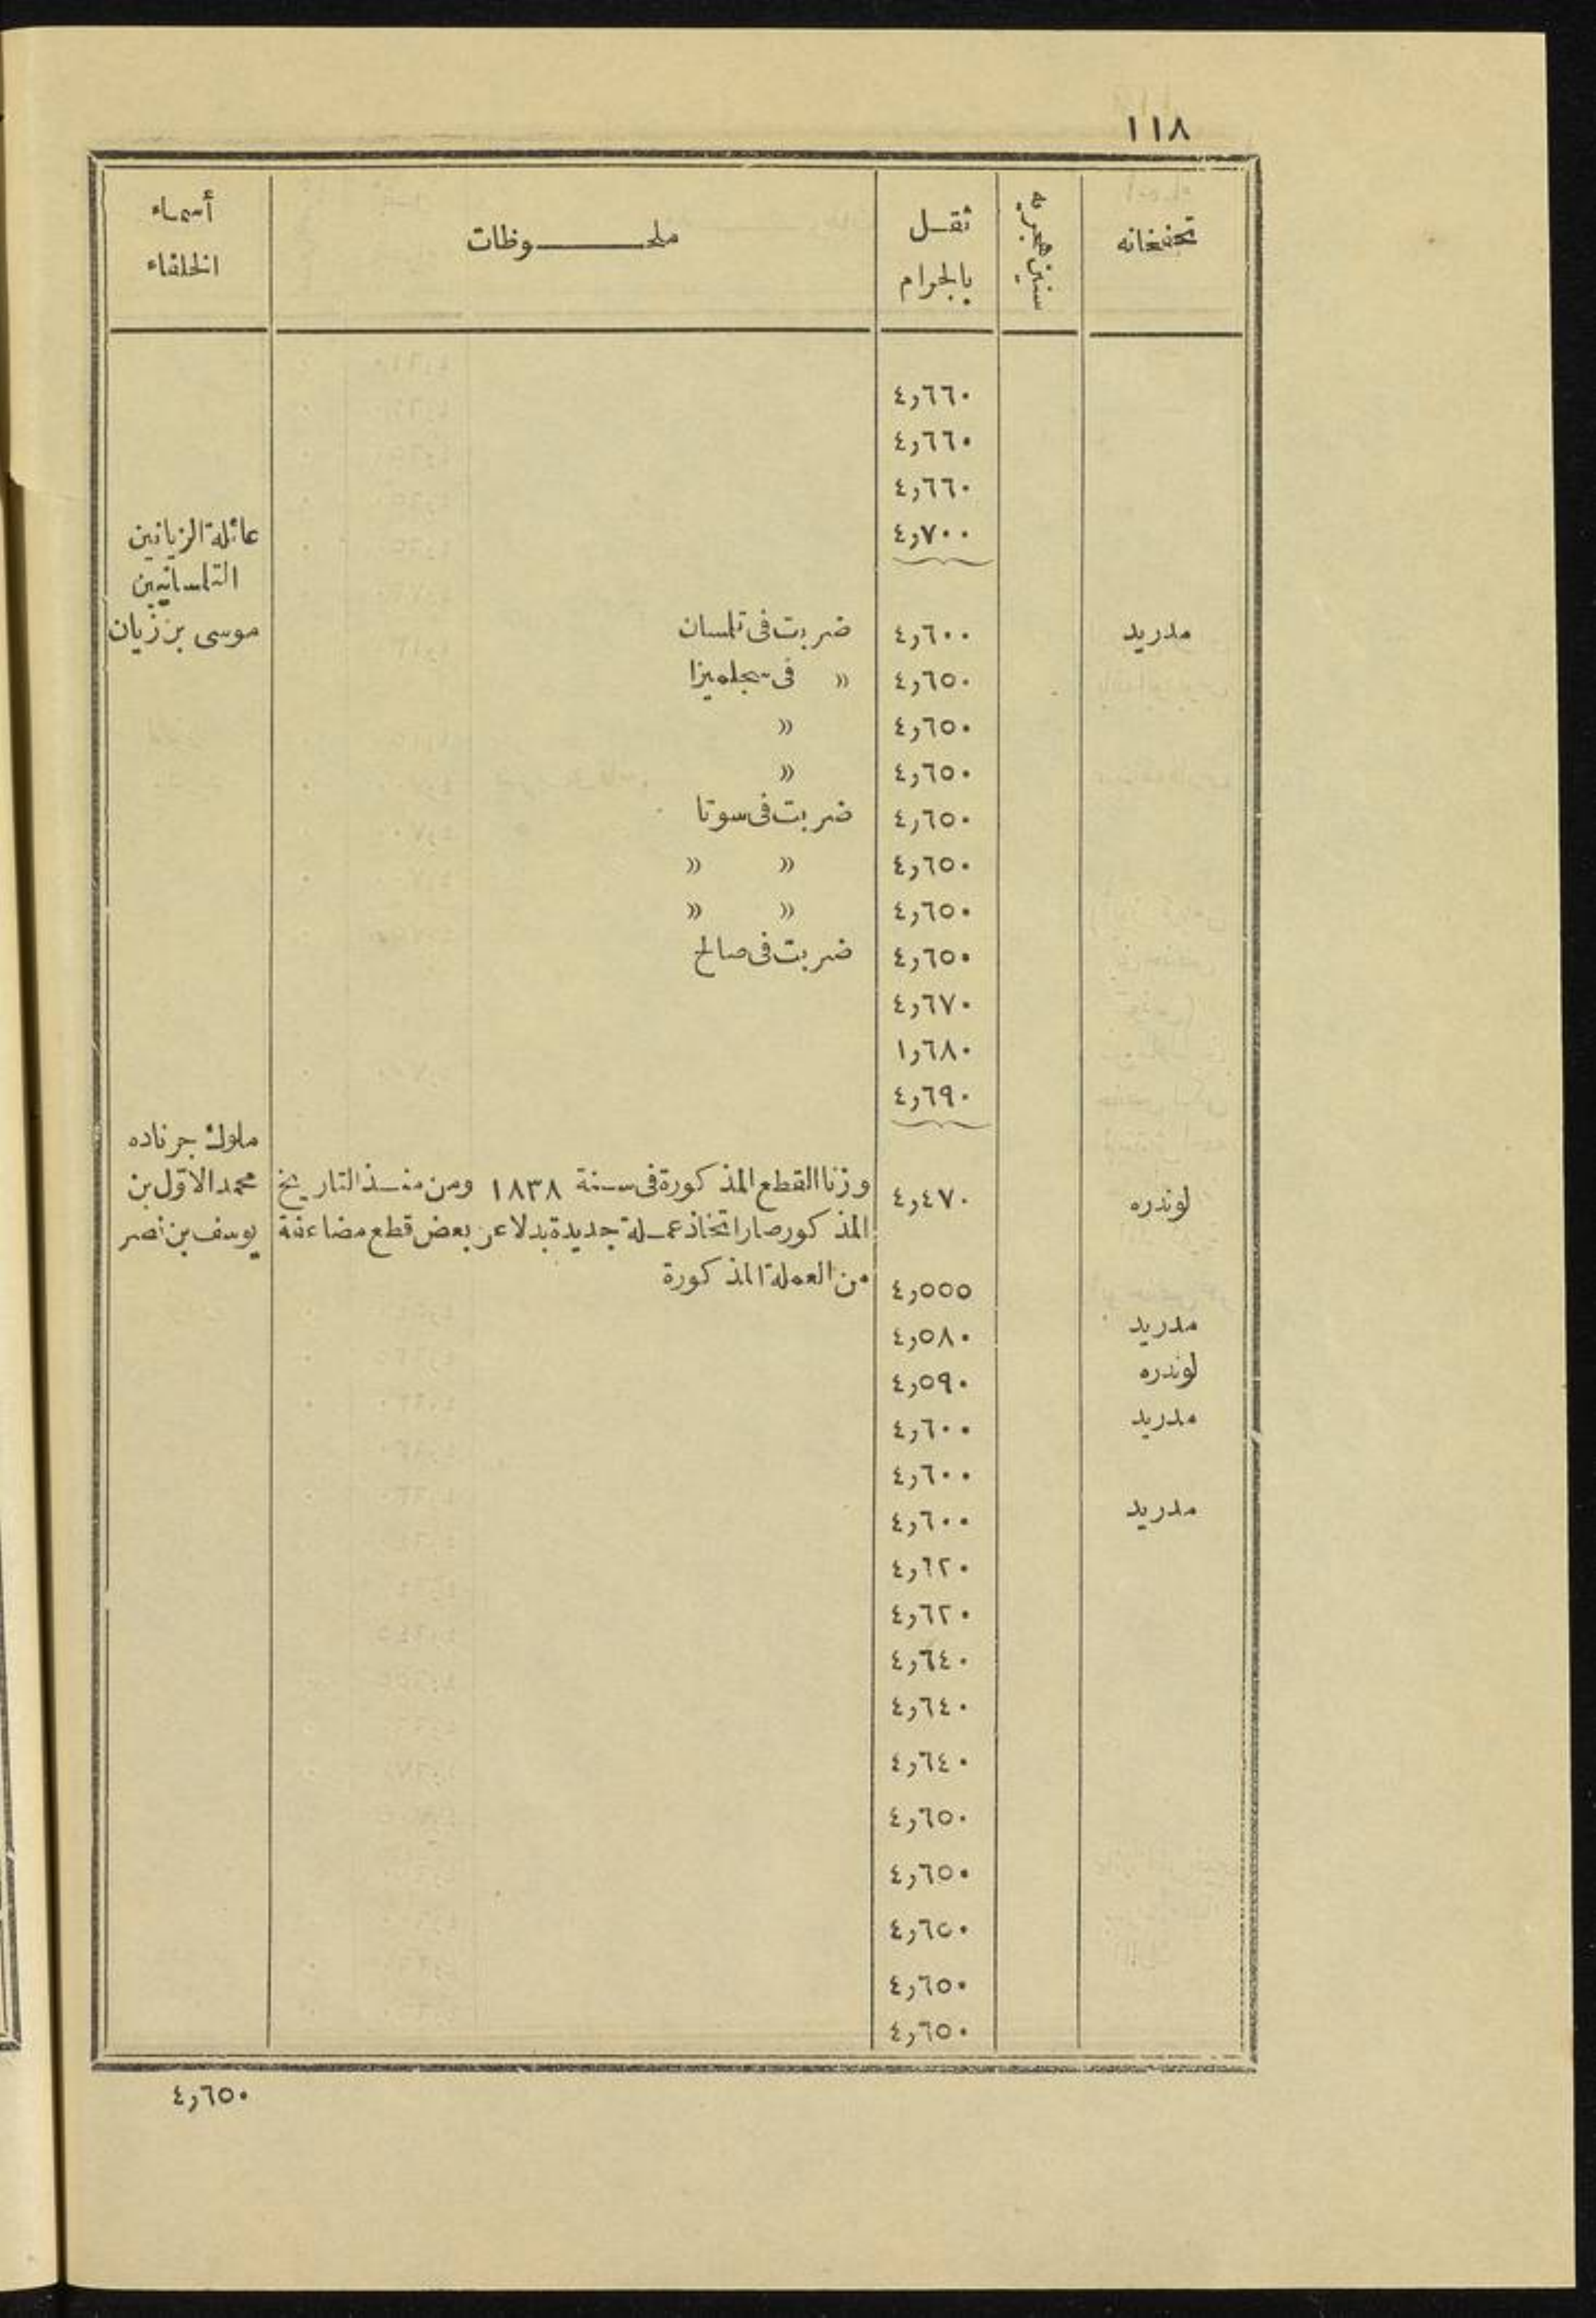 ١١٨
تحفخانه | سنين هجريه | ثقل بالجرام | ملحوظات | أسماء الخلفاء
٤,٦٦٠
٤,٦٦٠
٤,٦٦٠
٤,٧٠٠ | عائلة الزيانين
التلمسانيين
مدريد | ٤,٦٠٠ | ضربت فى تلمسان | موسى بن زيان
٤,٦٥٠ | » فى سجلميزا
٤,٦٥٠ | »
٤,٦٥٠ | »
٤,٦٥٠ | ضربت فى سوتا
٤,٦٥٠ | » »
٤,٦٥٠ | » »
٤,٦٥٠ | ضربت فى صالح
٤,٦٧٠
١,٦٨٠
٤,٦٩٠
ملوك جرناده
لوندره | ٤,٤٧٠ | وزنا القطع المذكورة فى سنة ١٨٣٨ ومن منذ التاريخ | محمد الاوّل بن
المذكور صار اتخاذ عملة جديدة بدلا عن بعض قطع مضاعفة | يوسف بن نصر
٤,٥٥٥ | من العملة المذكورة
مدريد | ٤,٥٨٠
لوندره | ٤,٥٩٠
مدريد | ٤,٦٠٠
٤,٦٠٠
مدريد | ٤,٦٠٠
٤,٦٢٠
٤,٦٢٠
٤,٦٤٠
٤,٦٤٠
٤,٦٤٠
٤,٦٥٠
٤,٦٥٠
٤,٦٥٠
٤,٦٥٠
٤,٦٥٠
٤,٦٥٠